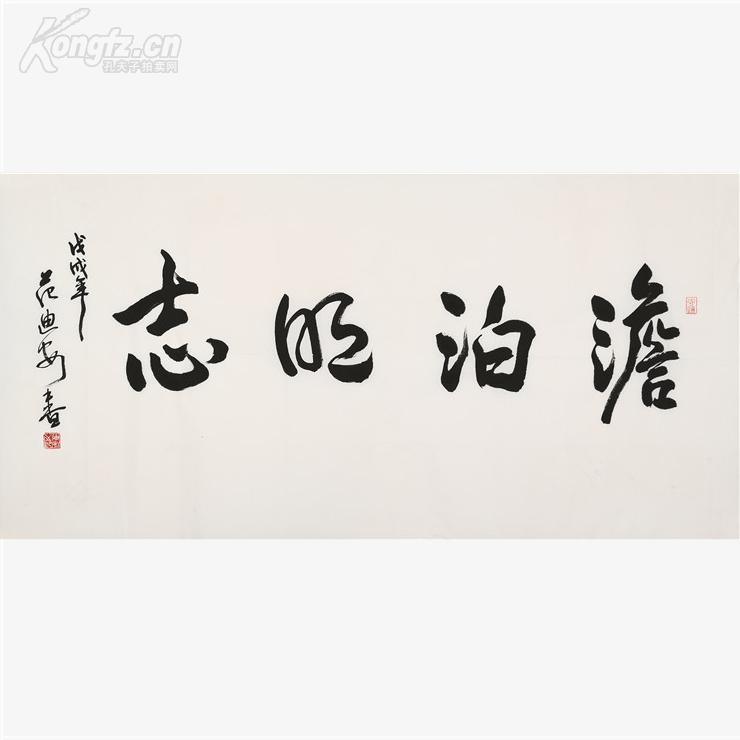 Kongfz.cn
孔夫子拍卖网
澹泊明志
戊戌年
范迪安书